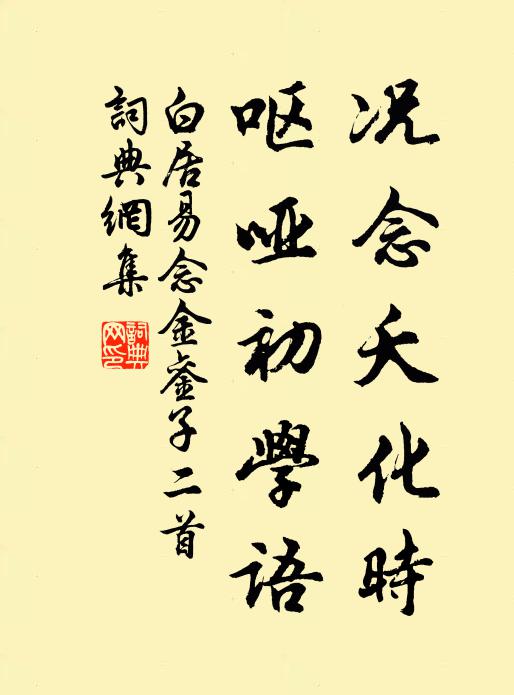 况念夭化時
呕哑初學语
白居易念金銮子二首
詞典網集
詞典網印